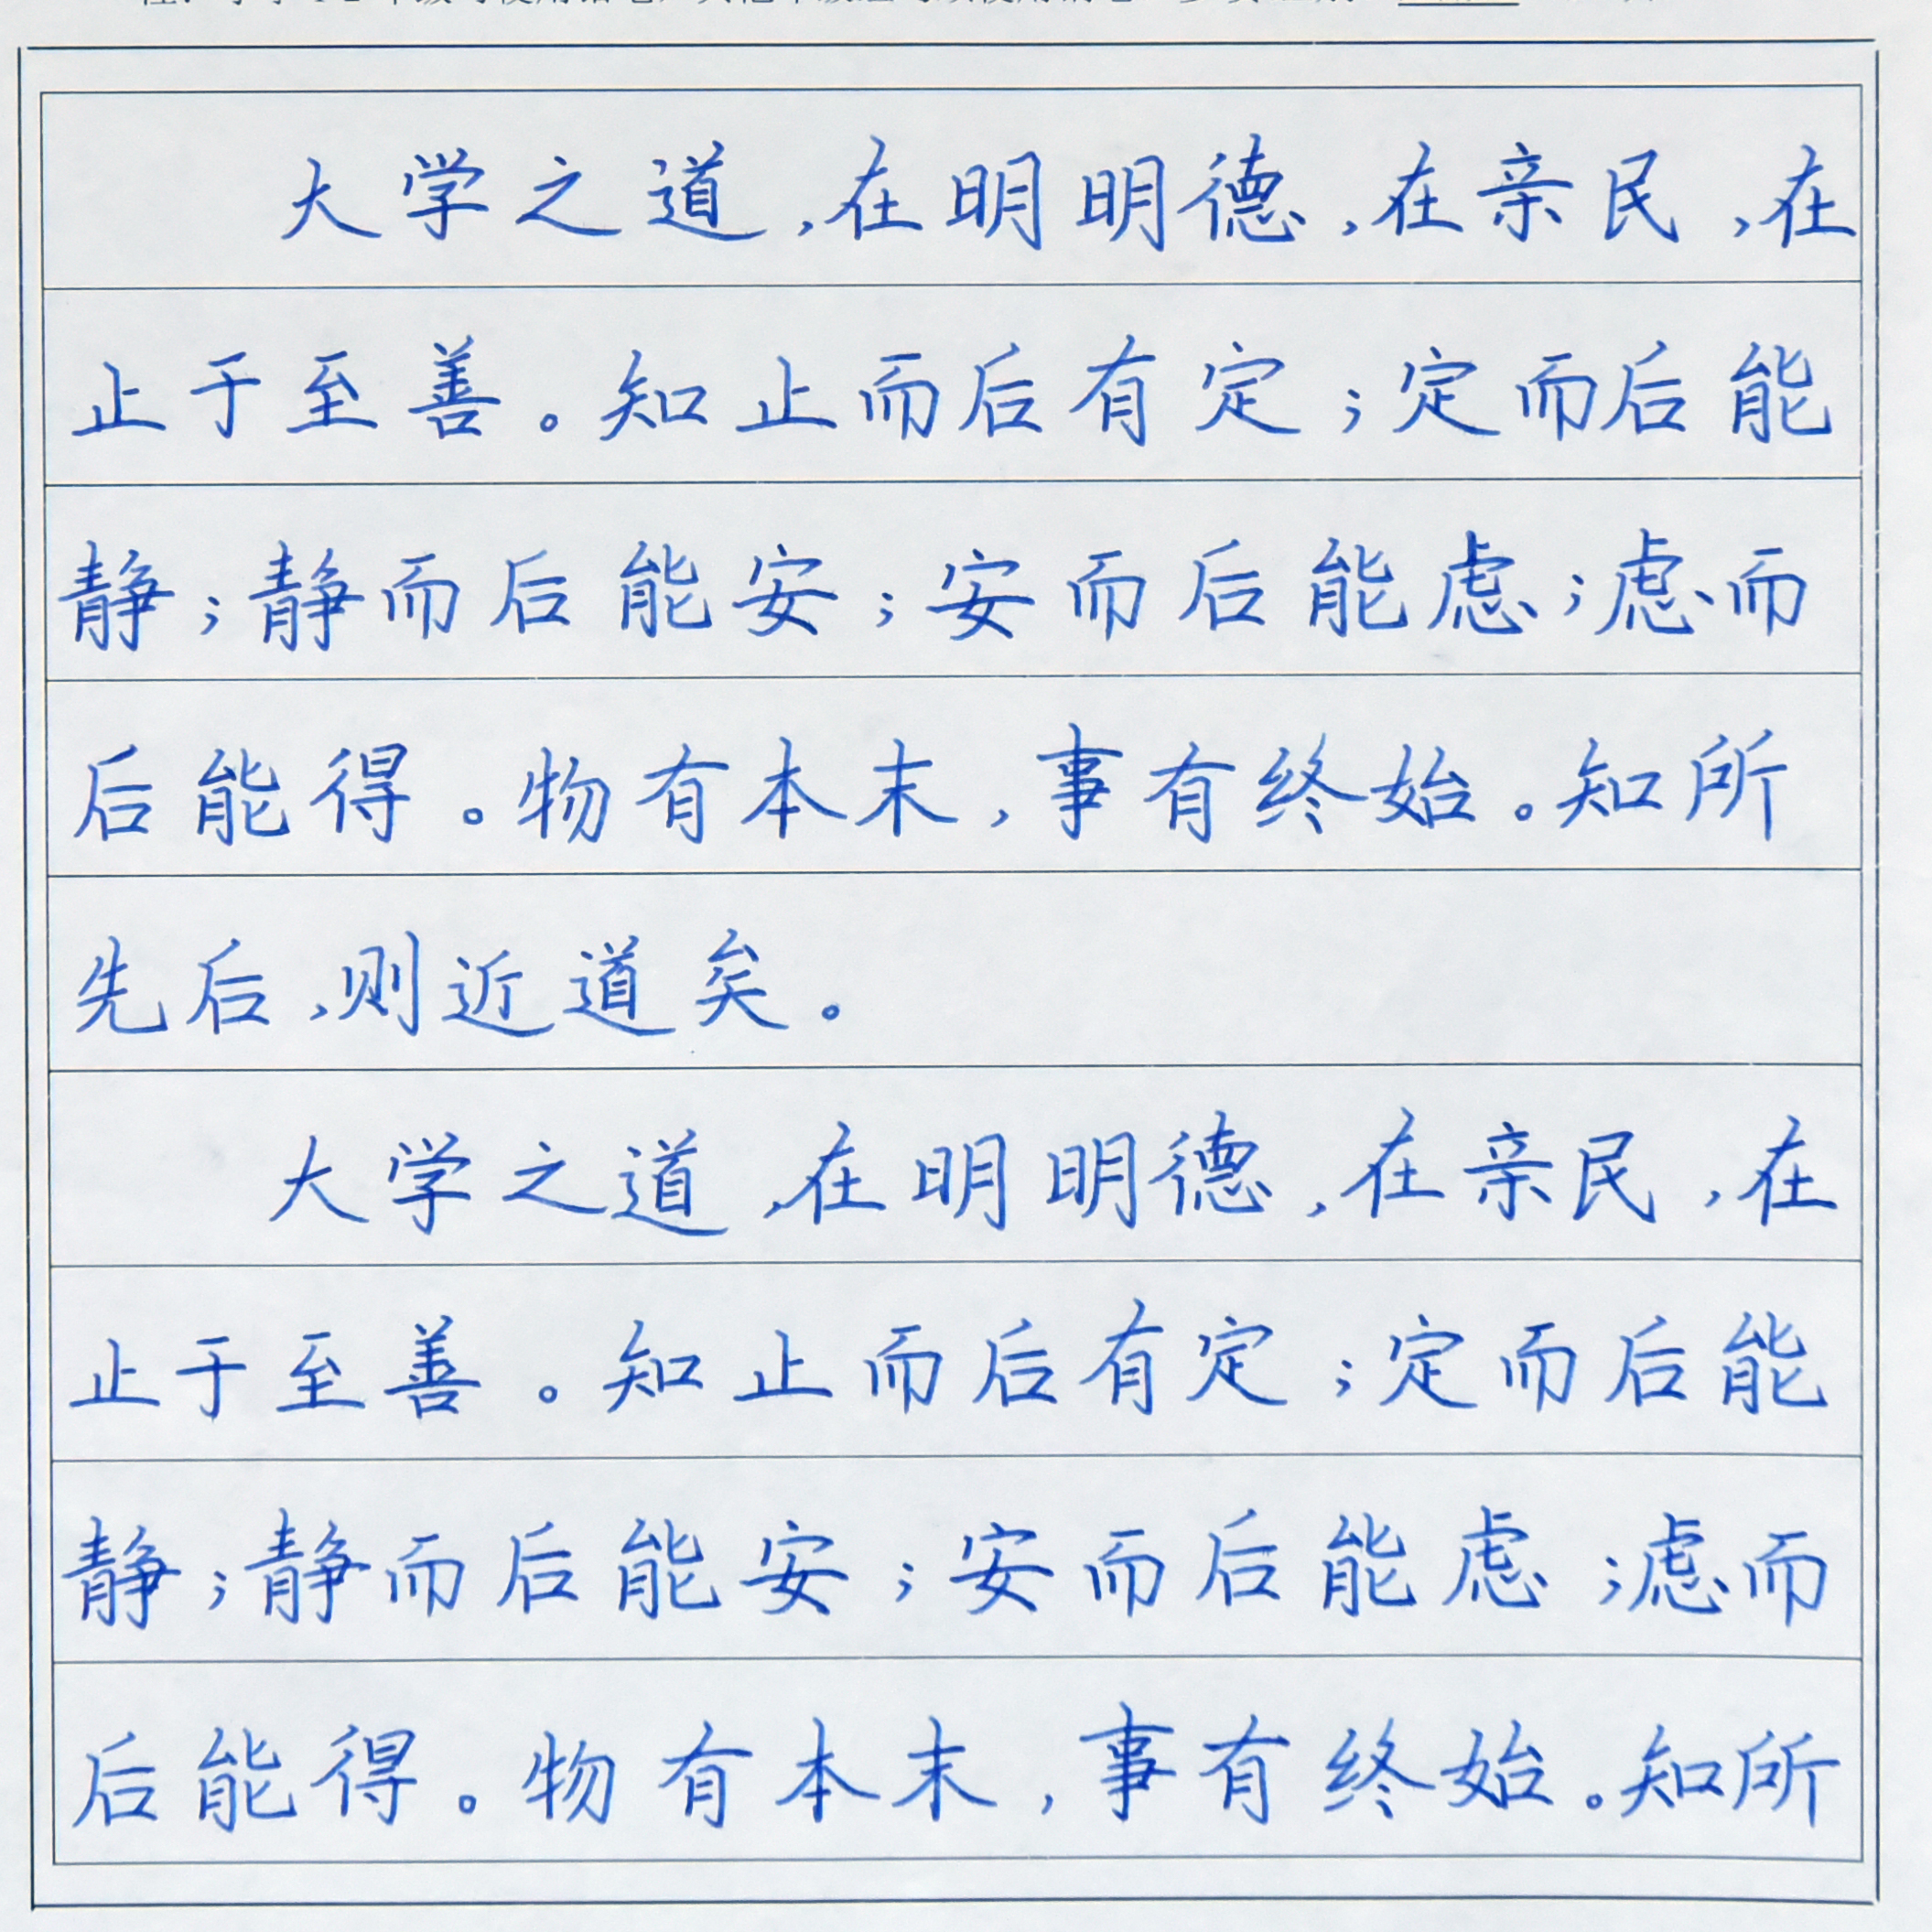 大学之道,在明明德,在亲民,在
止于至善。知止而后有定;定而后能
静;静而后能安;安而后能虑;虑而
后能得。物有本末,事有终始。知所
先后,则近道矣。
大学之道,在明明德,在亲民,在
止于至善。知止而后有定;定而后能
静;静而后能安;安而后能虑;虑而
后能得。物有本末,事有终始。知所